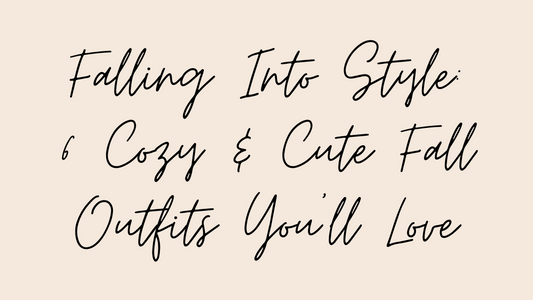 Falling Into Style:
6 Cozy & Cute Fall
Outfits You'll Love